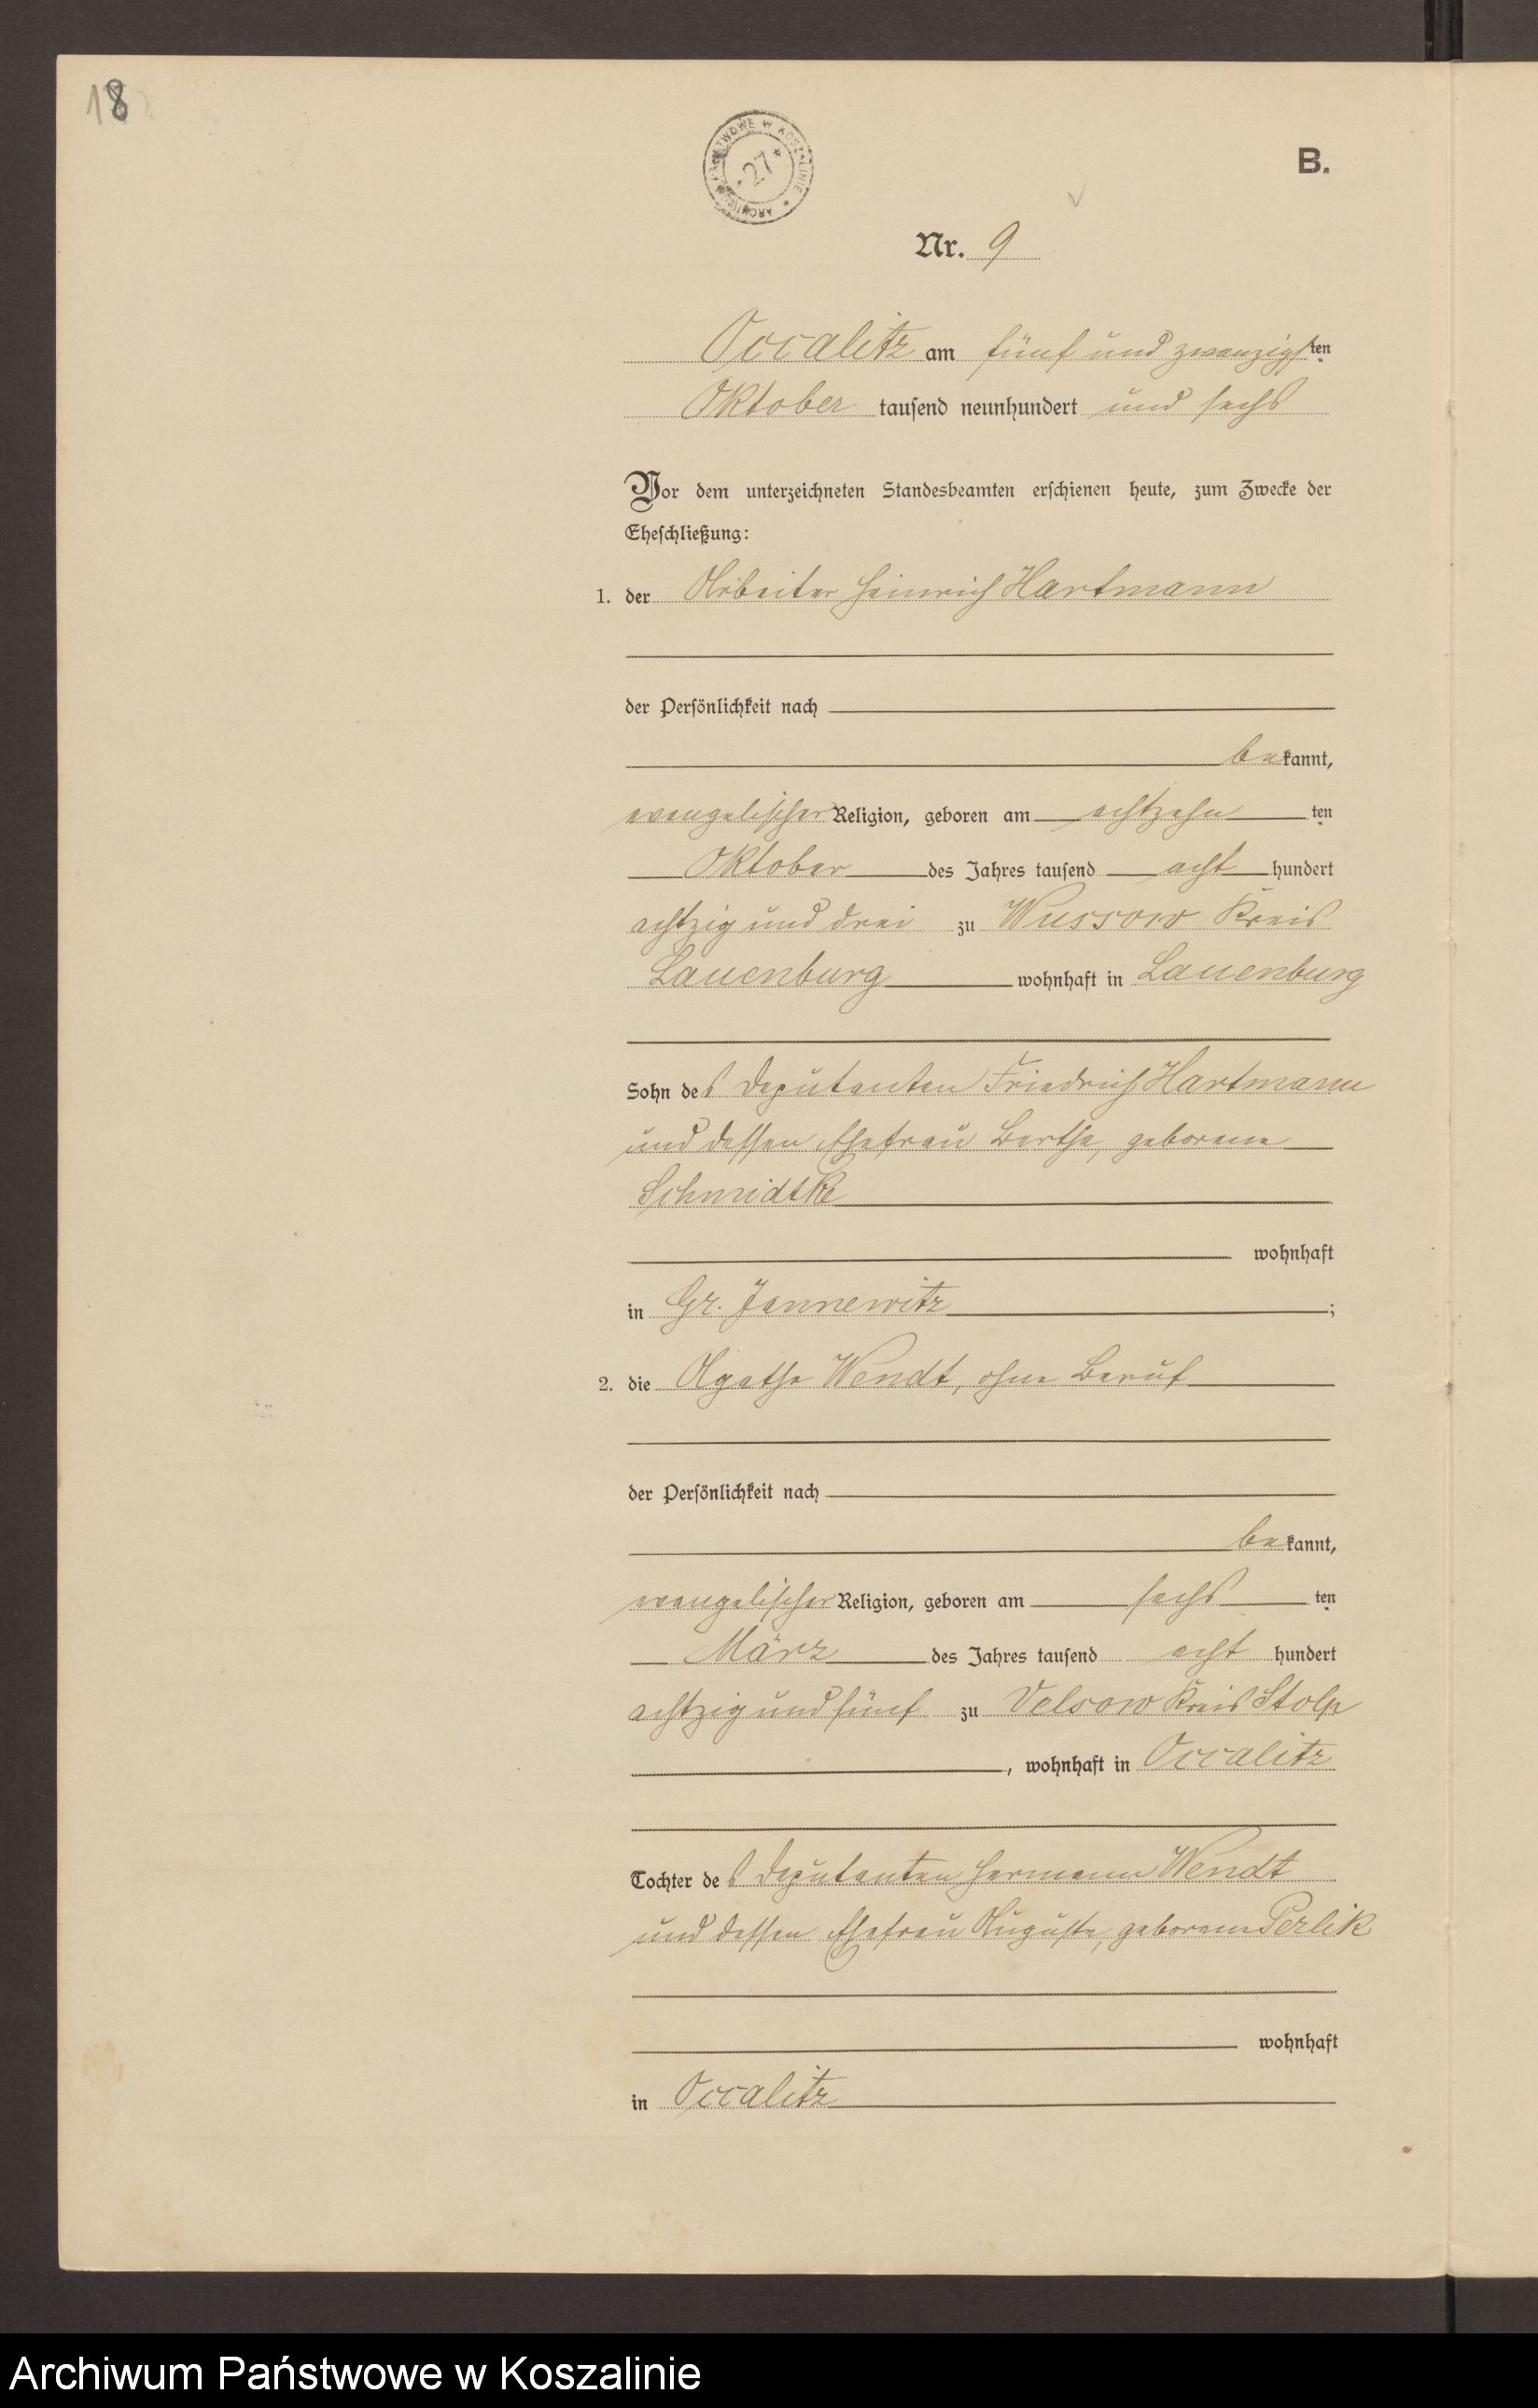 18
ARCHIWUM PAŃSTWOWE W KOSZALINIE
27
B.
Nr. 9
Occalitz am fünf und zwanzigsten
Oktober tausend neunhundert und sechs
Vor dem unterzeichneten Standesbeamten erschienen heute, zum Zwecke der
Eheschließung:
1. der Arbeiter Heinrich Hartmann
der Persönlichkeit nach
bekannt,
evangelischer Religion, geboren am achtzehnten
Oktober des Jahres tausend acht hundert
achtzig und drei zu Wussow Kreis
Lauenburg wohnhaft in Lauenburg
Sohn des Deputanten Friedrich Hartmann
und dessen Ehefrau Bertha, geborene
Schmidtke
wohnhaft
in Gr. Jannewitz ;
2. die Agathe Wendt, ohne Beruf
der Persönlichkeit nach
bekannt,
evangelischer Religion, geboren am sechsten
März des Jahres tausend acht hundert
achtzig und fünf zu Velsow Kreis Stolp
, wohnhaft in Occalitz
Tochter des Deputanten Hermann Wendt
und dessen Ehefrau Auguste, geborene Perlik
wohnhaft
in Occalitz
Archiwum Państwowe w Koszalinie